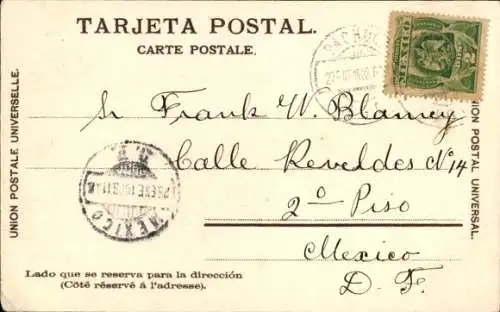 TARJETA POSTAL.
CARTE POSTALE.
UNION POSTALE UNIVERSELLE.
UNION POSTAL UNIVERSAL.
MEXICO
Sr Frank W. Blamey
Calle Reveldes No 14
2º Piso
Mexico
D. F.
MEXICO
Lado que se reserva para la dirección
(Côté réservé á l'adresse).